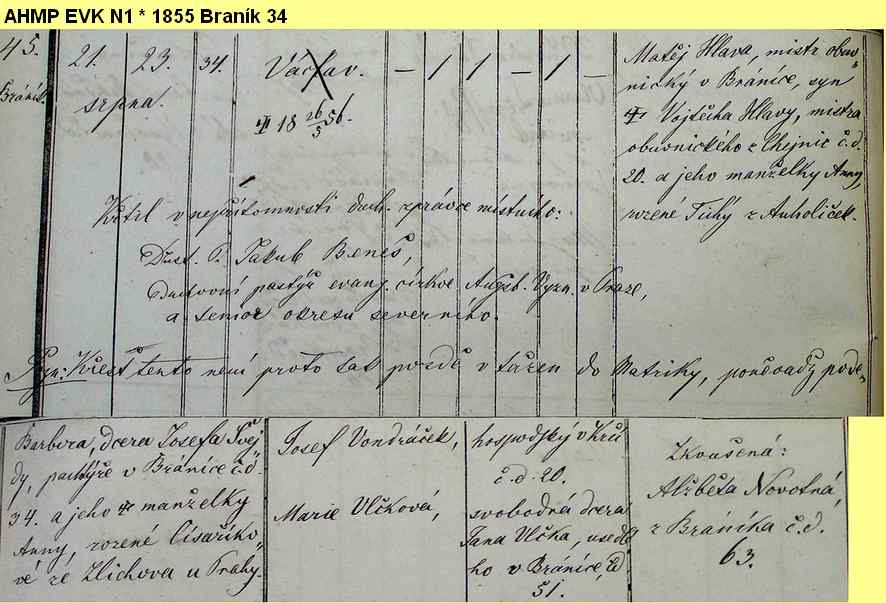 AHMP EVK N1 * 1855 Braník 34
45.
Bráník.
21. 23. 34. Václav. – 1 1 – 1 –
srpna.
18 26/5 56.
Matěj Hlava, mistr obuv-
nický v Bránice, syn
Vojtěcha Hlavy, mistra
obuvnického z Chejnic č.d.
20. a jeho manželky Anny,
rozené Tichý z Auholiček.
Křtil v nepřítomnosti duch. zprávce místního:
Důst. P. Jakub Beneš,
Duchovní pastýř evang. církve Augsb. Vyzn. v Praze,
a senior okresu severního.
Křest tento není proto tak pozdě vtažen do Matriky,
Barbora, dcera Josefa Švej-
dy, pastýře v Bránice č.d.
34. a jeho manželky
Anny, rozené Císařiko-
vé ze Zlichova u Prahy.
Josef Vondráček,
Marie Vlčková,
hospodský v
č.d. 20.
svobodná dcera
Jana Vlčka, usedlé-
ho v Bránice,
51.
Zkoušená:
Alžběta Novotná,
z Bráníka č.d.
63.